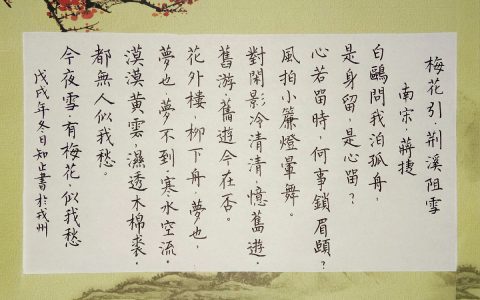 梅花引·荆溪阻雪
南宋 蔣捷
白鷗問我泊孤舟,
是身留 是心留?
心若留時,何事鎖眉頭?
風拍小簾燈暈舞。
對閑影冷清清憶舊遊.
舊游舊遊今在否。
花外樓,柳下舟,夢也,
夢也夢不到,寒水空流.
漠漠黃雲,濕透木棉裘.
都無人似我愁。
今夜雪,有梅花,似我愁
戊戌年冬日知止書於戎州